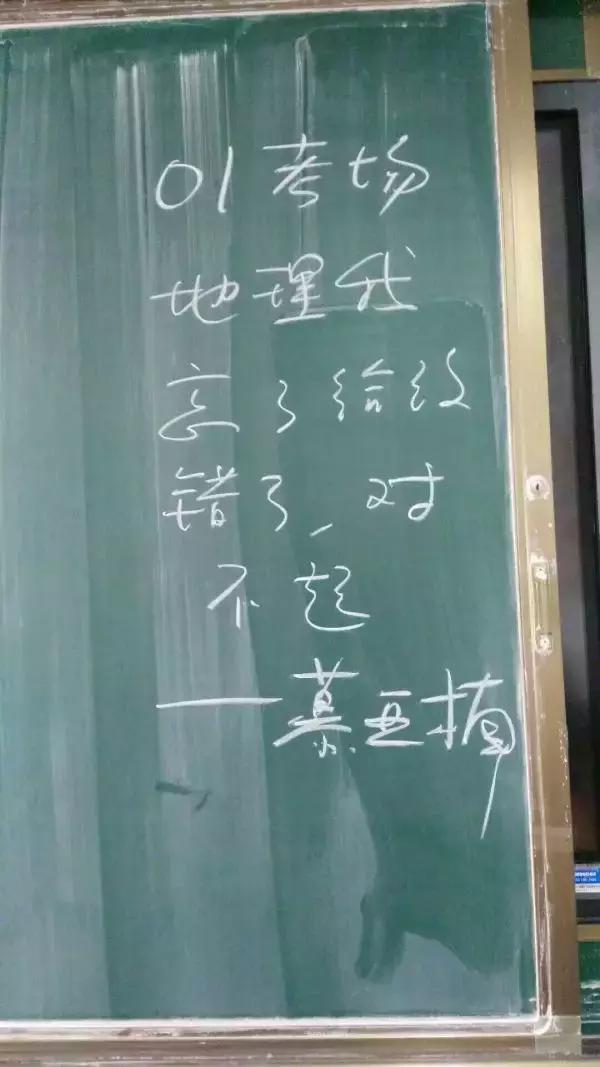 01考场
地理我
忘了给纹
错了，对
不起
——慕亚楠